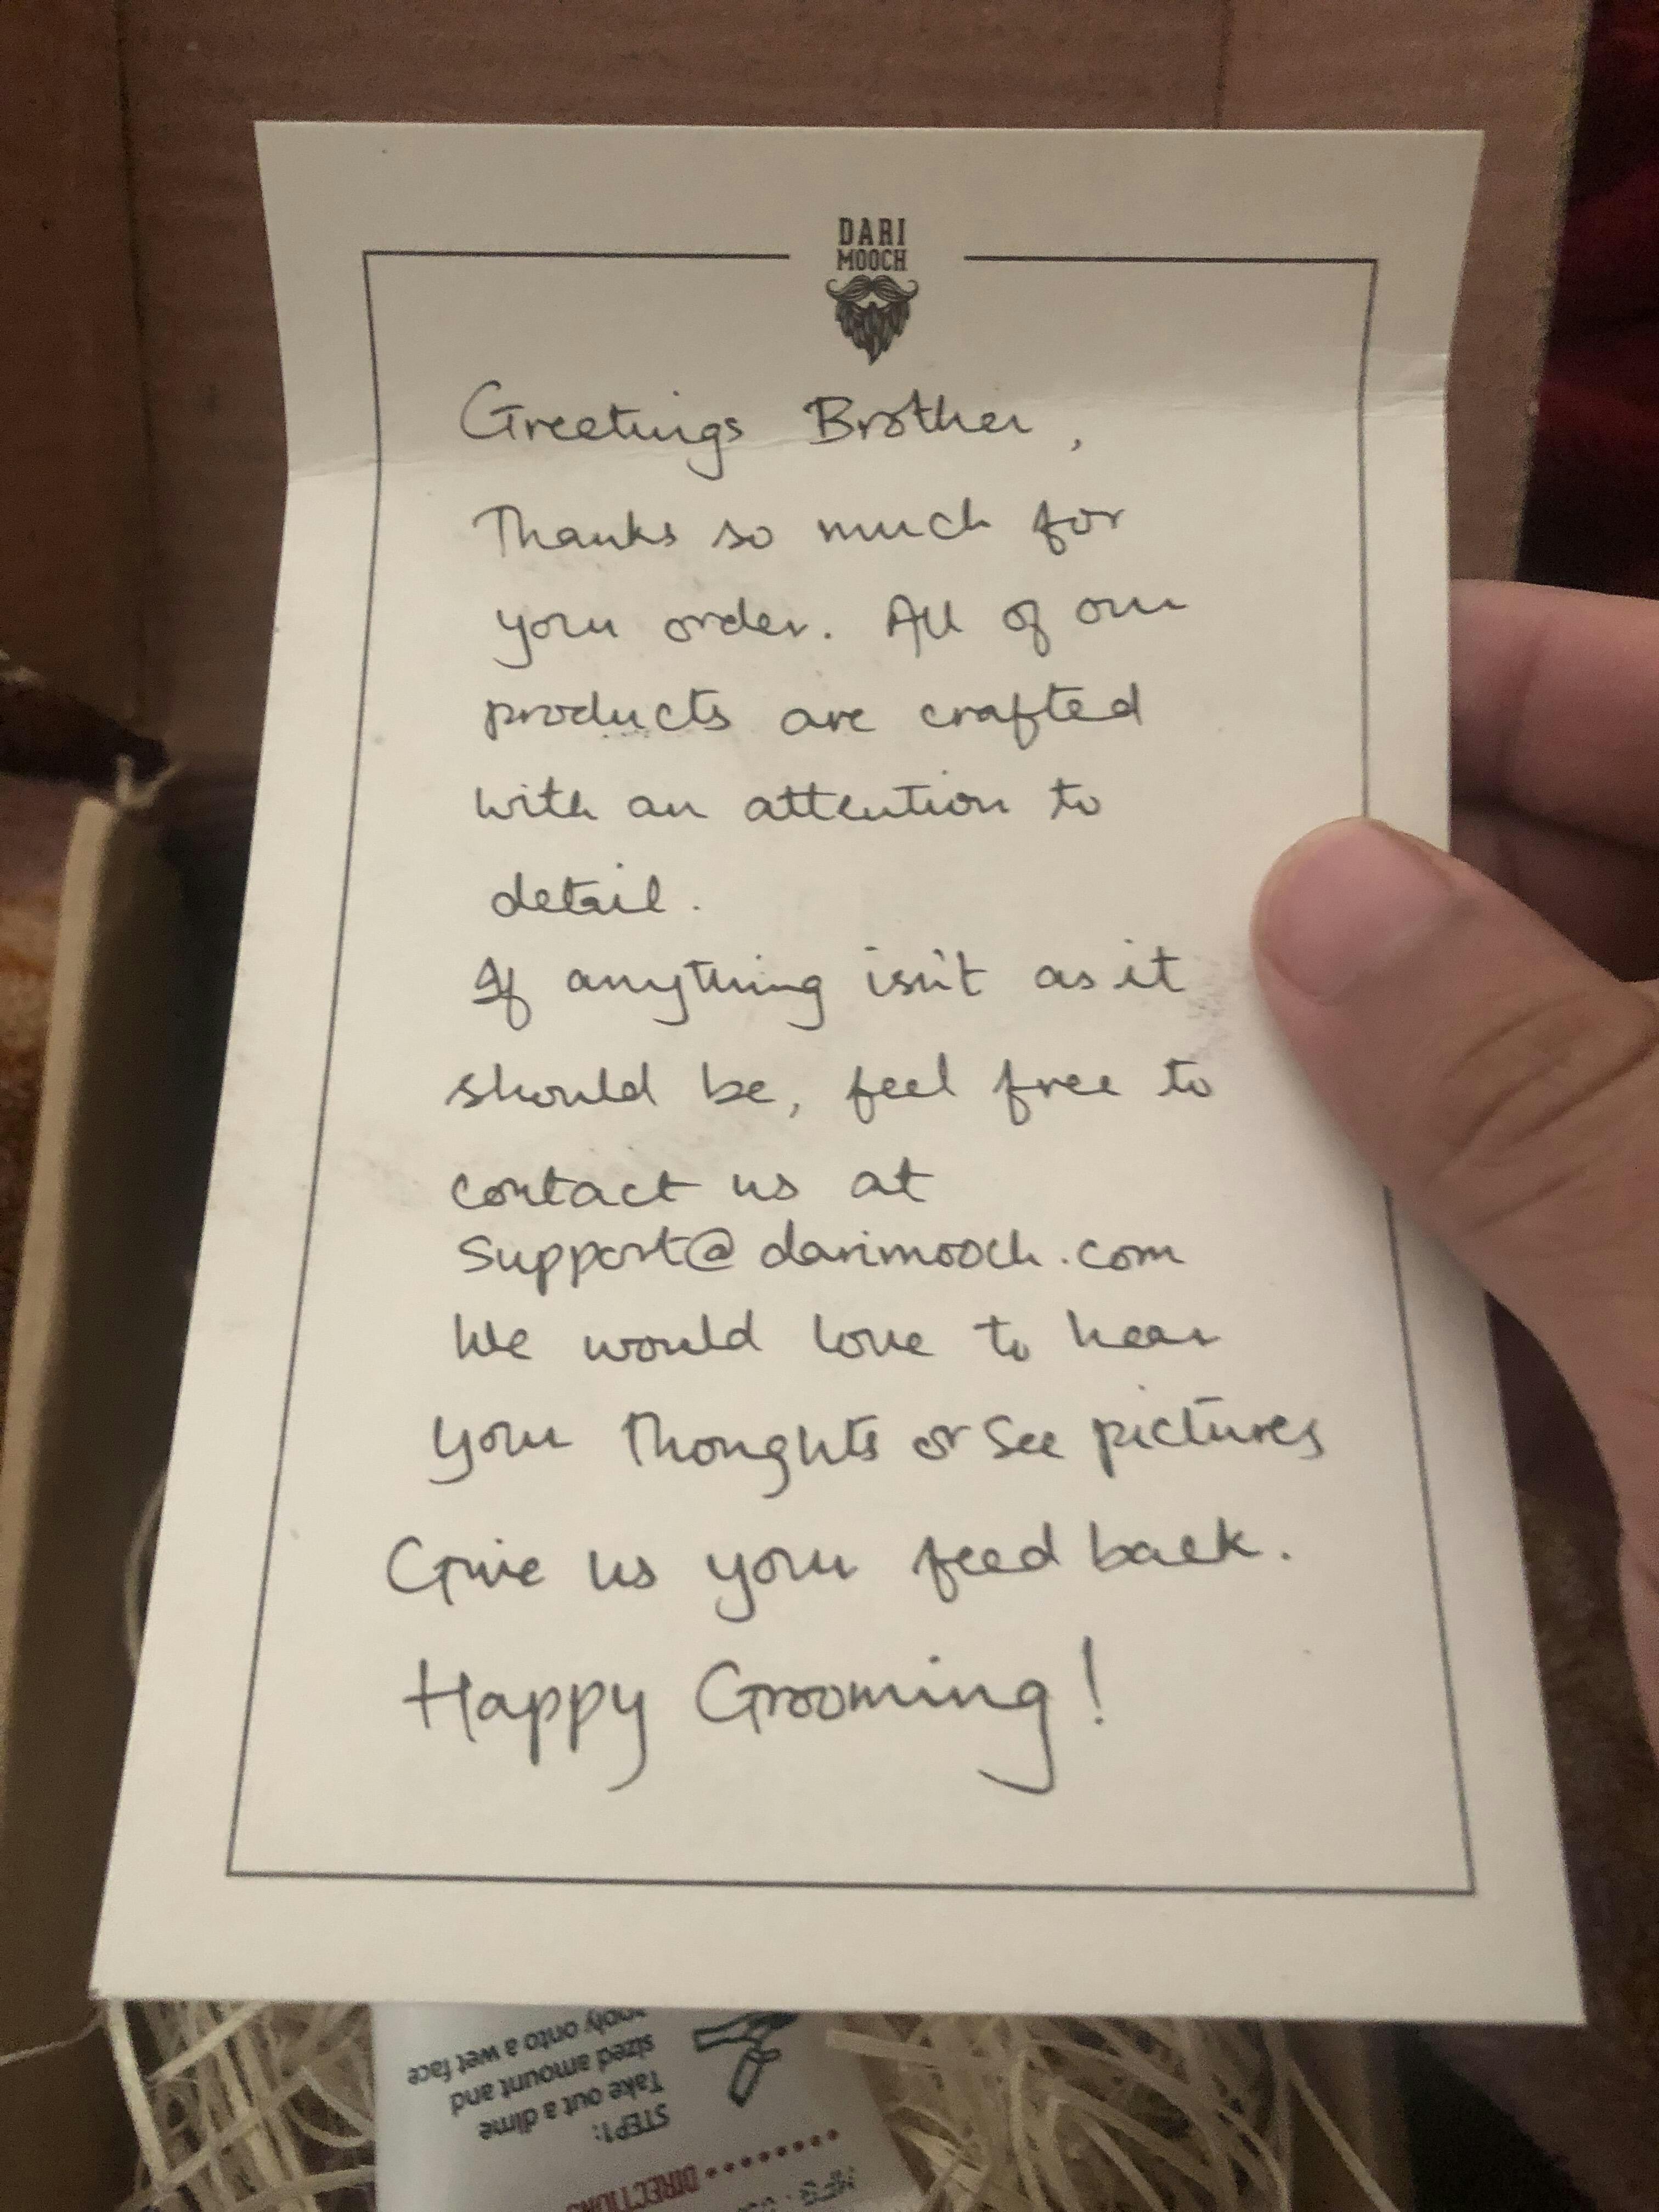 DARI
MOOCH
Greetings Brother,
Thanks so much for
your order. All of our
products are crafted
with an attention to
detail.
If anything isn't as it
should be, feel free to
contact us at
Support@darimooch.com
We would love to hear
your thoughts or See pictures
Give us your feed back.
Happy Grooming!
MFG:
DIRECTIONS
STEP1:
Take out a dime
sized amount and
onto a wet face